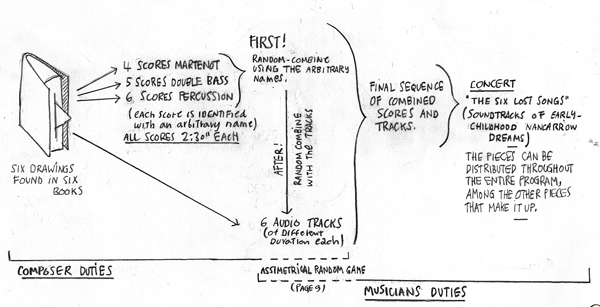 4 SCORES MARTENOT
5 SCORES DOUBLE BASS
6 SCORES PERCUSSION
(EACH SCORE IS IDENTIFIED
WITH AN ARBITRARY NAME)
ALL SCORES 2:30" EACH
SIX DRAWINGS
FOUND IN SIX
BOOKS
FIRST!
RANDOM-COMBINE
USING THE ARBITRARY
NAMES.
AFTER!
RANDOM COMBINE
WITH THE TRACKS
6 AUDIO TRACKS
(OF DIFFERENT
DURATION EACH)
FINAL SEQUENCE
OF COMBINED
SCORES AND
TRACKS.
CONCERT
"THE SIX LOST SONGS"
(SOUNDTRACKS OF EARLY-
CHILDHOOD NANCARROW
DREAMS)
THE PIECES CAN BE
DISTRIBUTED THROUGHOUT
THE ENTIRE PROGRAM,
AMONG THE OTHER PIECES
THAT MAKE IT UP.
COMPOSER DUTIES
ASSIMETRICAL RANDOM GAME
(PAGE 9)
MUSICIANS DUTIES